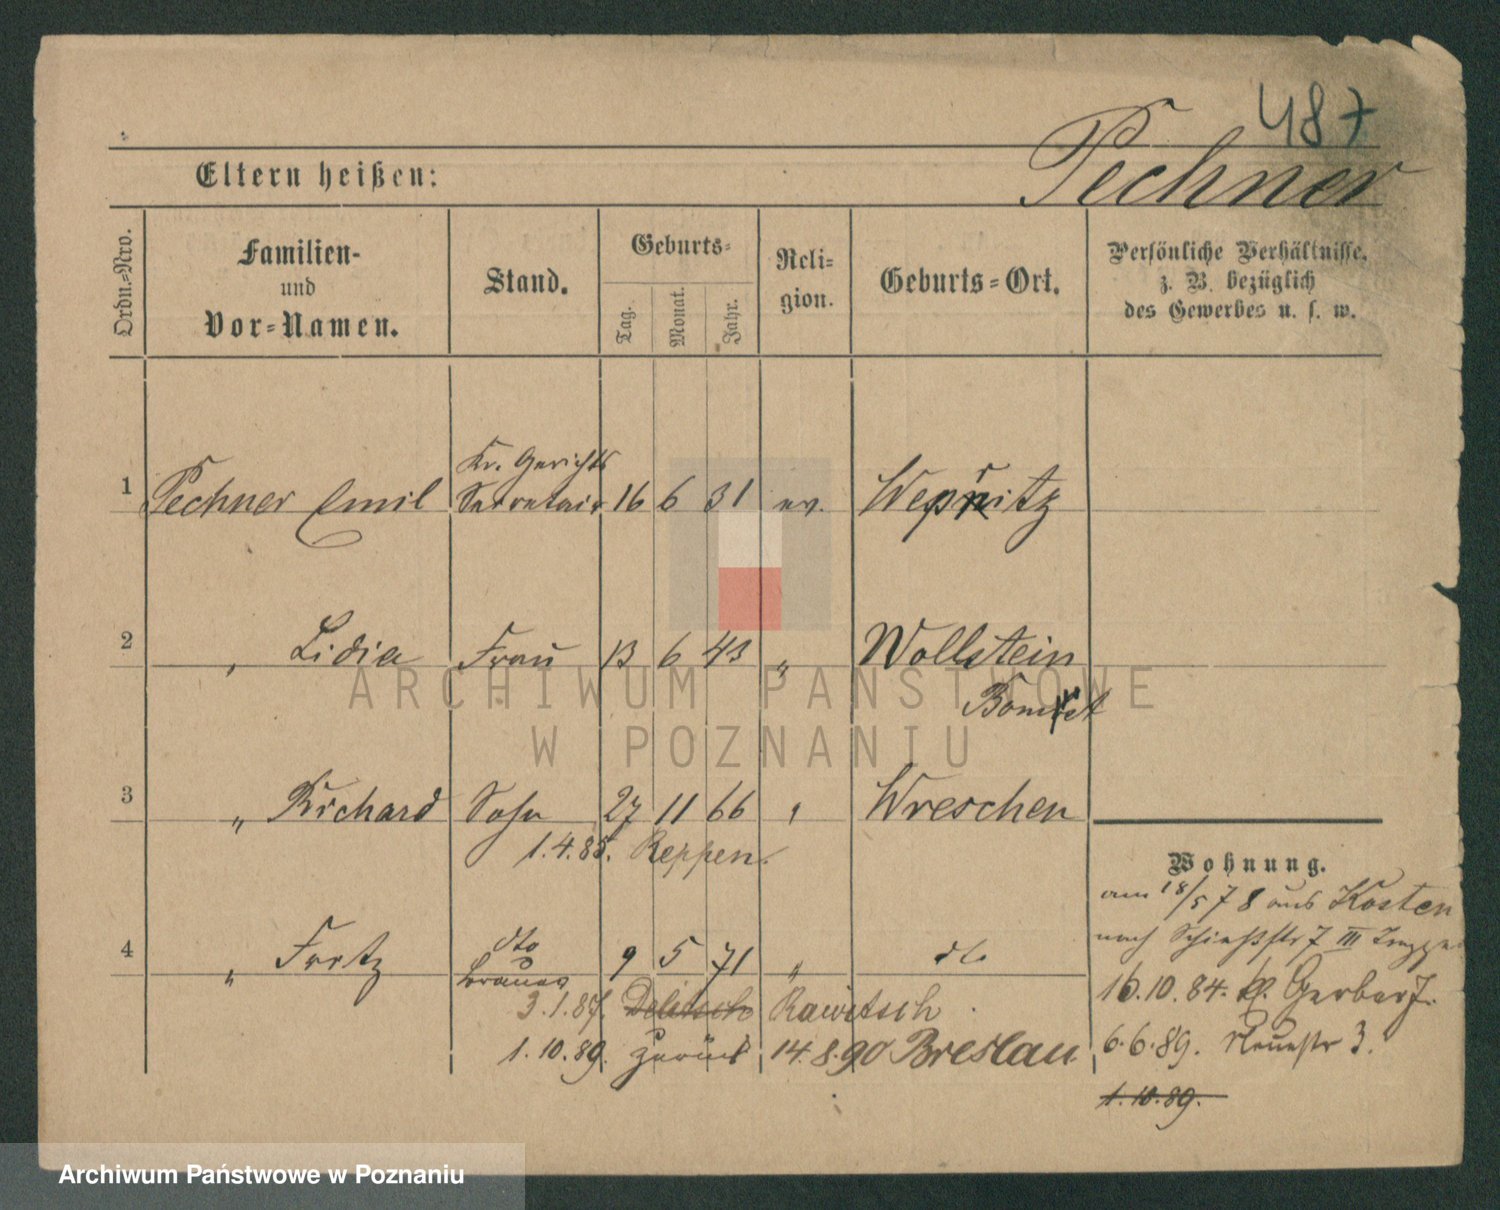 487
Pechner
Eltern heißen:
Ordn.-Nro.
Familien-
und
Vor-Namen.
Stand.
Geburts-
Tag.
Monat.
Jahr.
Reli-
gion.
Geburts-Ort.
Persönliche Verhältnisse,
z. B. bezüglich
des Gewerbes u. s. w.
Kr. Gerichts
1 Pechner Emil Secretair 16 6 31 ev.
2 " Lidia Frau 13 6 43 " Wollstein
Bomst
3 " Richard Sohn 27 11 66 " Wreschen
1.4.85. Reppen.
Wohnung.
am 18/5 78 aus Kosten
nach Schießstr 7 III
dto
4 " Fritz 9 5 71 " dto
3.1.87. Rawitsch
16.10.84. Gerber 7.
1.10.89. zurück 14.8.90 Breslau
6.6.89. Neuestr 3.
1.10.89.
ARCHIWUM PAŃSTWOWE
W POZNANIU
Archiwum Państwowe w Poznaniu